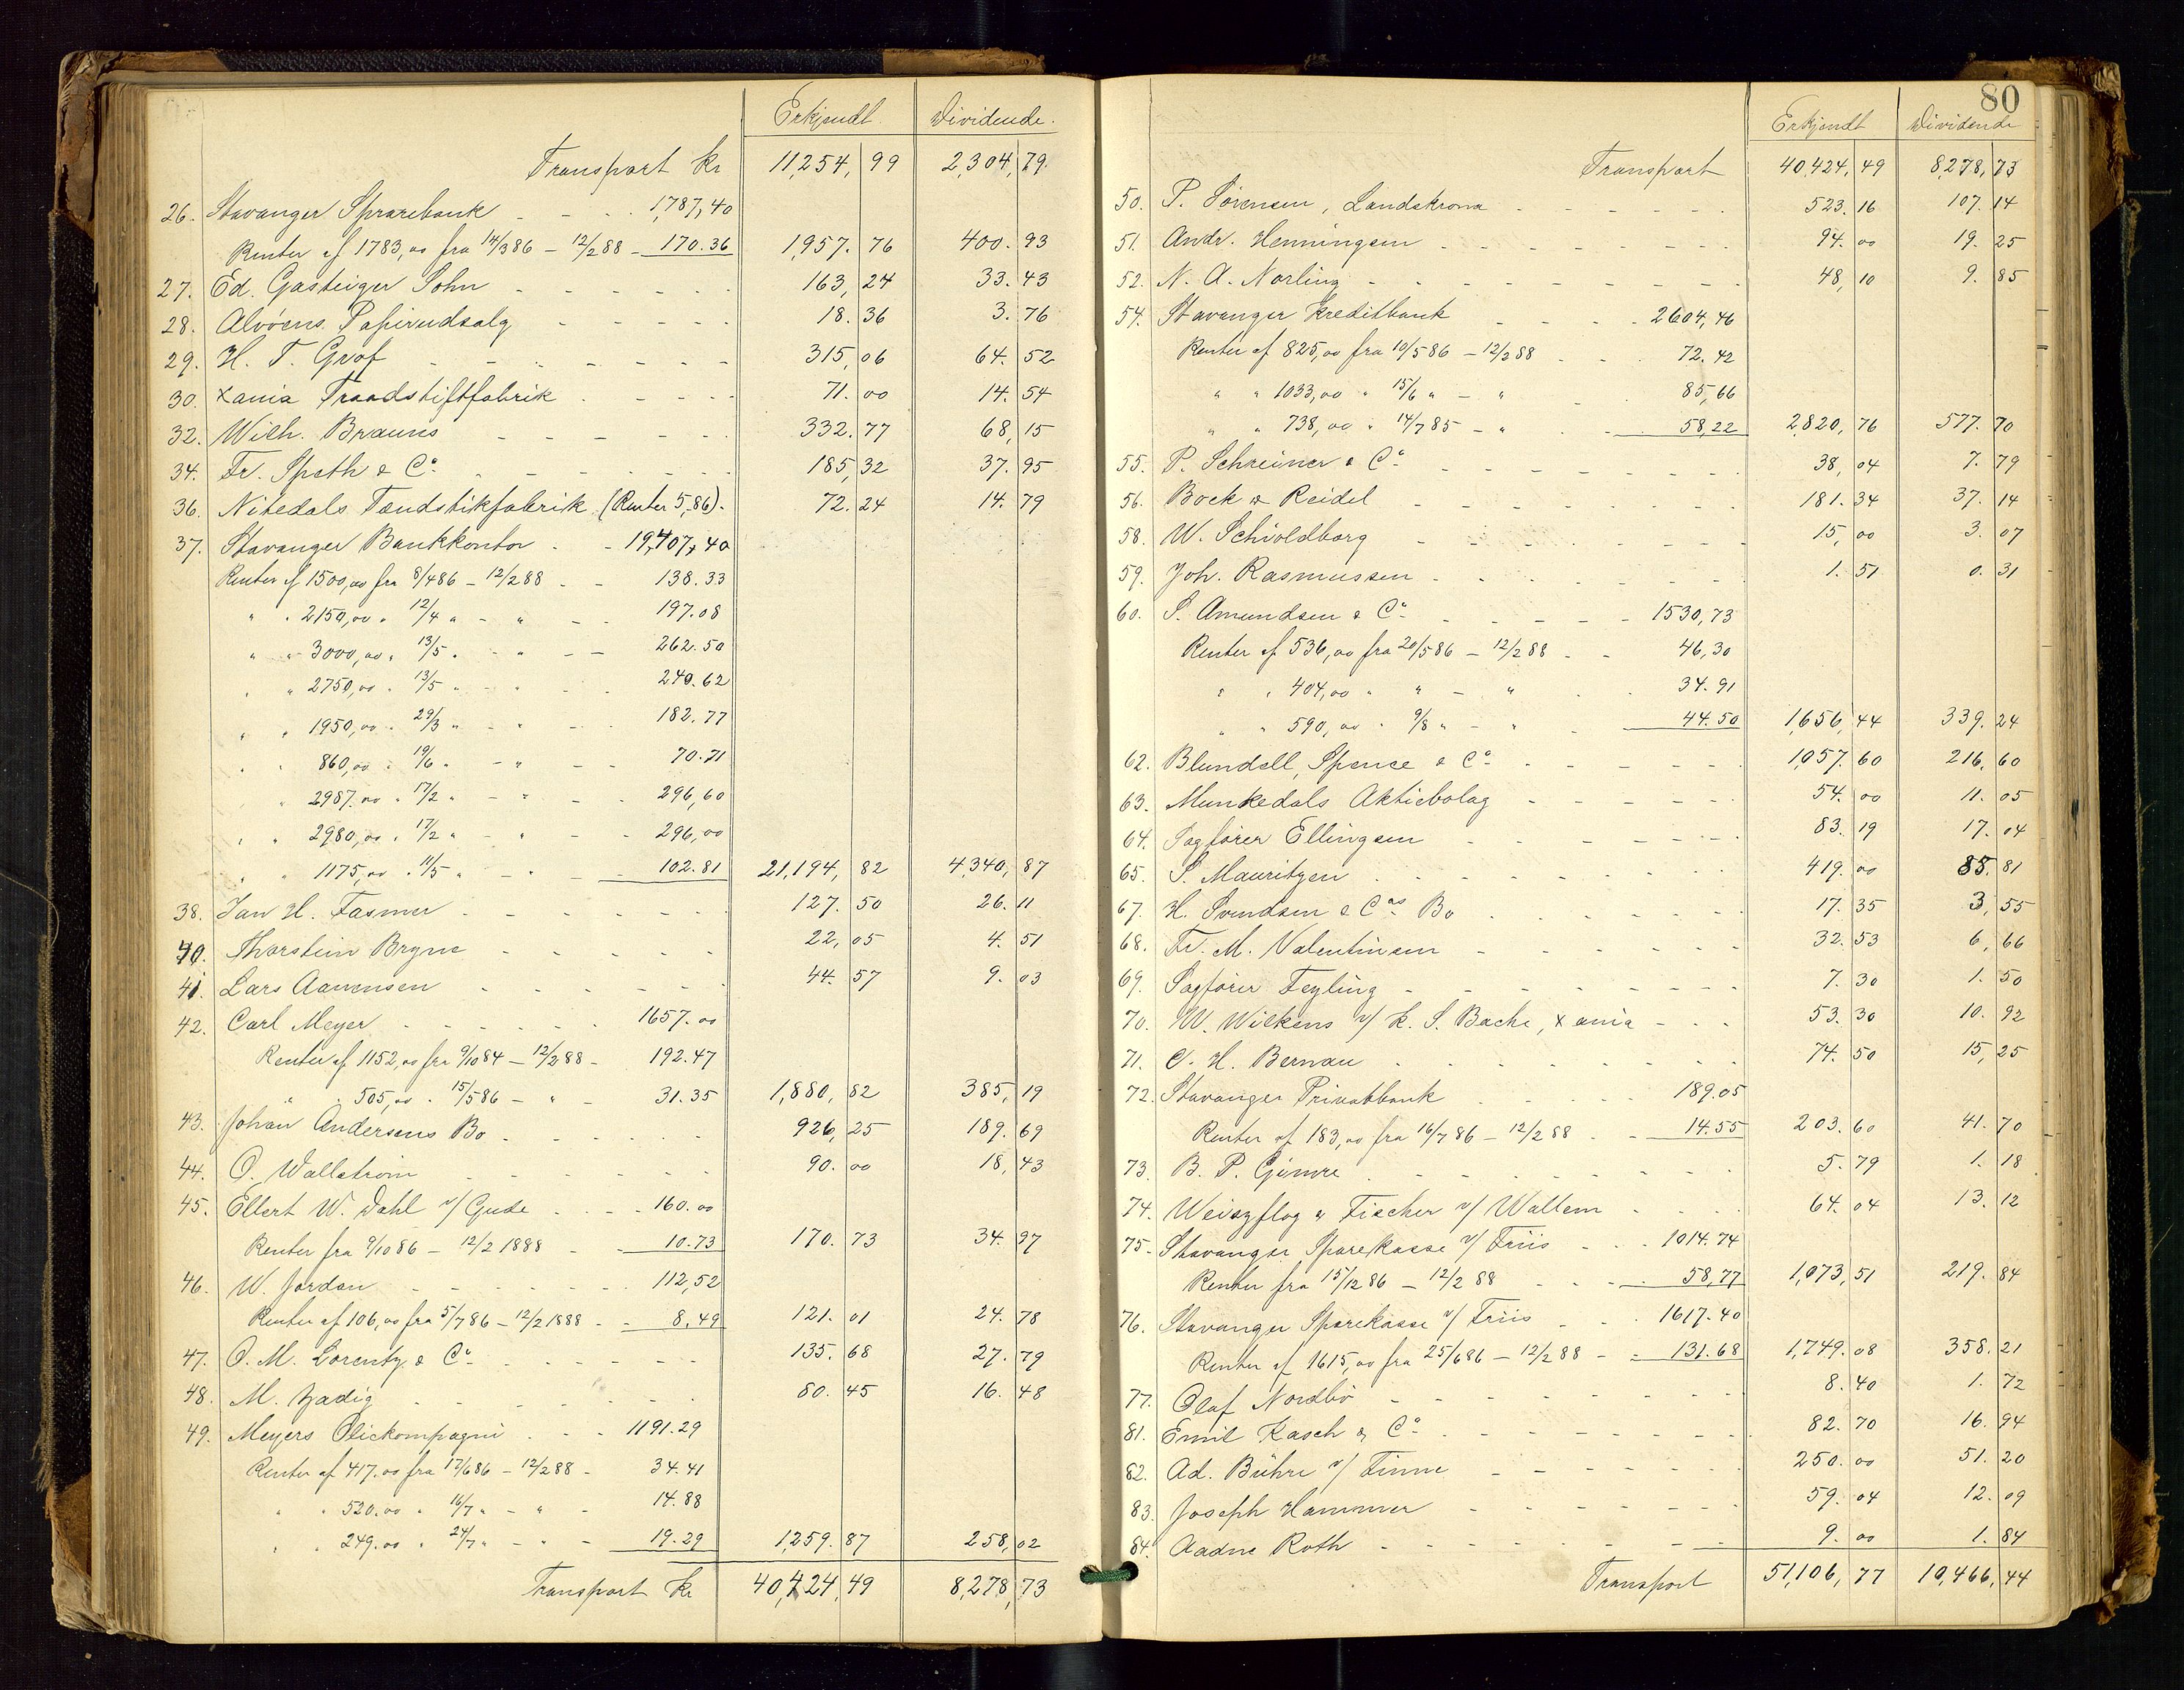 Erkjendt. Dividende.
Transport kr 11,254,99 2,304,79.
26. Stavanger Sparebank - - - 1,787,40
Renter af 1783,00 fra 14/3 86 - 12/2 88 - 170.36 1,957.76 400.93
27. Ed. Gasteiger Sohn - - - - - 163,24 33.43
28. Alvøens Papirudsalg - - - - - 18.36 3.76
29. H. T. Grof - - - - - - 315,06 64.52
30. Xania Traadstiftfabrik - - - - 71.00 14.54
32. Wilh. Brauns - - - - - 332.77 68,15
34. Fr. Speth & Co. - - - - - 185,32 37.95
36. Nitedals Tændstikfabrik (Renter 5,86). 72.24 14.79
37. Stavanger Bankkontor - - 19,407,40
Renter af 1500,00 fra 8/4 86 - 12/2 88 - - 138.33
" " 2150,00 " 12/4 " - " - - 197.08
" " 3000,00 " 13/5 " - " - - 262.50
" " 2750,00 " 13/5 " - " - - 240.62
" " 1950,00 " 29/3 " - " - - 182.77
" " 860,00 " 19/6 " - " - - 70.71
" " 2987.00 " 17/2 " - " - - 296,60
" " 2980,00 " 17/2 " - " - - 296,00
" " 1175,00 " 11/5 " - " - - 102.81 21,194,82 4,340,87
38. Jan H. Fasmer - - - - - - 127.50 26.11
40. Thorstein Bryne - - - - - 22,05 4.51
41. Lars Aanensen - - - - - 44.57 9.03
42. Carl Meyer - - - - - - 1657.00
Renter af 1152,00 fra 9/10 84 - 12/2 88 - 192.47
" " 505,00 " 15/5 86 - " - 31.35 1,880,82 385,19
43. Johan Andersens Bo - - - - - 926,25 189.69
44. O. Wallstrøm - - - - - - 90.00 18,43
45. Ellert W. Dahl v/ Gude - - - 160.00
Renter fra 9/10 86 - 12/2 1888 - - 10.73 170.73 34.97
46. W. Jordan - - - - - - 112,52
Renter af 106,00 fra 5/7 86 - 12/2 1888 - - 8.49 121.01 24.78
47. O. M. Lorentz & Co. - - - - - 135.68 27.79
48. M. Zadig - - - - - - 80.45 16.48
49. Meyers Oliekompagni - - - 1191.29
Renter af 417.00 fra 17/6 86 - 12/2 88 - 34.41
" " 520.00 " 16/7 " - " - 14.88
" " 249.00 " 24/7 " - " - 19.29 1,259.87 258,02
Transport kr 40,424,49 8,278,73
80
Erkjendt Dividende
Transport 40,424,49 8,278,73
50. P. Sørensen, Landskrona - - - - - 523.16 107.14
51. Andr. Henningsen - - - - - - 94.00 19.25
52. N. A. Norling - - - - - - - 48,10 9.85
54. Stavanger Kreditbank - - - - 2604,46
Renter af 825,00 fra 10/5 86 - 12/2 88 - - 72.42
" " 1033,00 " 15/6 " - " - 85,66
" " 738,00 " 14/7 85 - " - - 58,22 2,820,76 577.70
55. P. Schreiner & Co. - - - - - - 38,04 7.79
56. Bock & Reidel - - - - - - 181.34 37.14
58. W. Schioldborg - - - - - - 15,00 3.07
59. Joh. Rasmussen - - - - - - 1.51 0.31
60. S. Amundsen & Co. - - - - - 1530,73
Renter af 536,00 fra 20/5 86 - 12/2 88 - - 46,30
" " 404,00 " " - " - - 34.91
" " 590,00 " 9/8 " - " - 44.50 1,656,44 339.24
62. Blundell, Spence & Co. - - - - - 1,057.60 216.60
63. Munkedals Aktiebolag - - - - - 54.00 11.05
64. Sagfører Ellingsen - - - - - - 83.19 17.04
65. S. Mauritzen - - - - - - - 419.00 85.81
67. H. Svendsen & Cos. Bo - - - - - - 17.35 3,55
68. Fr. M. Valentinsen - - - - - 32.53 6,66
69. Sagfører Feyling - - - - - - - 7.30 1.50
70. W. Wilkens v/ K. S. Bache, Xania - - - 53.30 10.92
71. C. H. Bernau - - - - - - 74.50 15,25
72. Stavanger Privatbank - - - - - 189.05
Renter af 183,00 fra 16/7 86 - 12/2 88 - - 14.55 203.60 41.70
73. B. P. Gimre - - - - - - 5.79 1.18
74. Weiszflog & Fischer v/ Wallem - - - - 64.04 13.12
75. Stavanger Sparekasse v/ Friis - - - 1014.74
Renter fra 15/12 86 - 12/2 88 - - - 58,77 1,073,51 219.84
76. Stavanger Sparekasse v/ Friis - - - 1617.40
Renter af 1615,00 fra 25/6 86 - 12/2 88 - - 131.68 1,749.08 358.21
77. Olaf Nordbø - - - - - - - 8.40 1.72
81. Emil Kasch & Co. - - - - - - - 82.70 16.94
82. Ad. Bühre v/ Finne - - - - - - 250.00 51.20
83. Joseph Hammer - - - - - - 59.04 12.09
84. Aadne Roth - - - - - - - 9.00 1.84
Transport 51,106,77 10,466,44